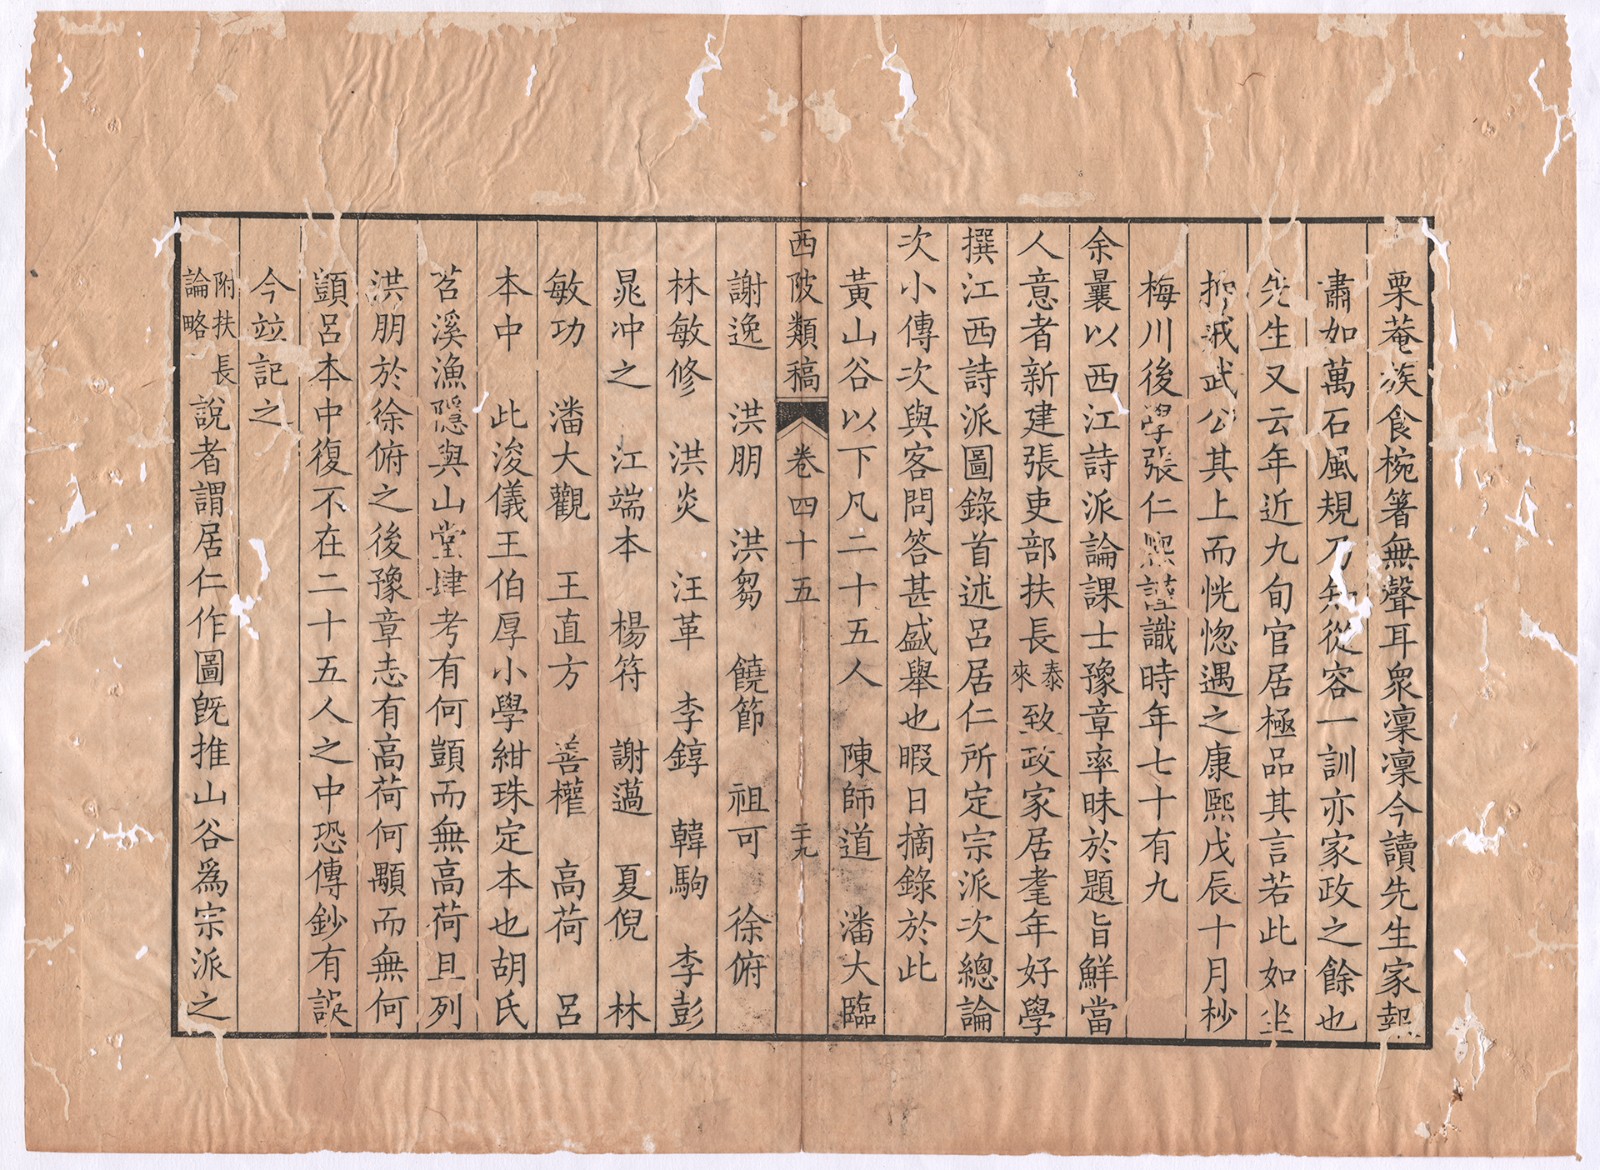 栗菴族食椀箸無聲耳衆凜凜今讀先生家報
肅如萬石風規乃知從容一訓亦家政之餘也
先生又云年近九旬官居極品其言若此如坐
抑戒武公其上而恍惚遇之康熙戊辰十月杪
梅川後學張仁熙謹識時年七十有九
余曩以西江詩派論課士豫章率昧於題旨鮮當
人意者新建張吏部扶長泰來致政家居耄年好學
撰江西詩派圖錄首述呂居仁所定宗派次總論
次小傳次與客問答甚盛舉也暇日摘錄於此
黃山谷以下凡二十五人 陳師道 潘大臨
西陂類稿 卷四十五 二十九
謝逸 洪朋 洪芻 饒節 祖可 徐俯
林敏修 洪炎 汪革 李錞 韓駒 李彭
晁冲之 江端本 楊符 謝薖 夏倪 林
敏功 潘大觀 王直方 善權 高荷 呂
本中 此浚儀王伯厚小學紺珠定本也胡氏
苕溪漁隱與山堂肆考有何顗而無高荷且列
洪朋於徐俯之後豫章志有高荷何顒而無何
顗呂本中復不在二十五人之中恐傳鈔有誤
今竝記之
附扶長論略 說者謂居仁作圖旣推山谷爲宗派之